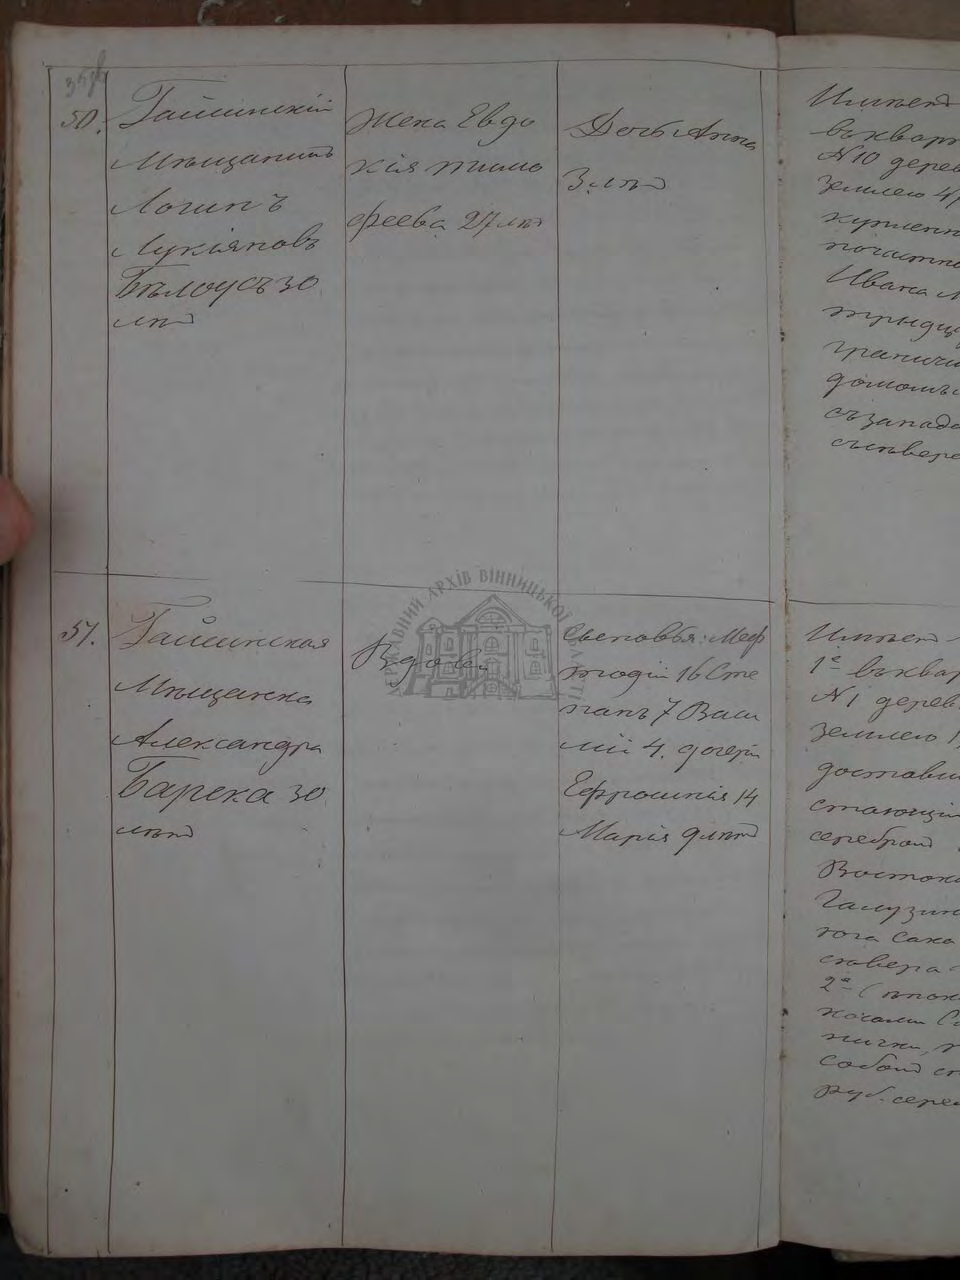 50.
Гайсинскій
Мѣщанинъ
Логинъ
Лукіяновъ
Бѣлоусъ 30
лѣтъ
Жена Евдо
кія тимо
феева 27 лѣт
Дочь Анна
3 лѣт
Имѣет
въ квар
N10 дерев
землею 4
купленн
почастно
Ивана
тридц
граничи
домомъ
съ запада
сѣвера
51.
Гайсинская
Мѣщанка
Александра
Барска 30
лѣтъ
Вдова
Сыновья: Меф
тодій 16 Сте
панъ 7 Васи
лій 4. дочери
Ефросинія 14
Марія 9 лѣтъ
Имѣет
1е въ квар
N1 дерев
землею 1
доставш
стоющій
серебром
Восток
Галузин
сѣвера
2е
собою с
руб. сере
ДЕРЖАВНИЙ АРХІВ ВІННИЦЬКОЇ ОБЛАСТІ